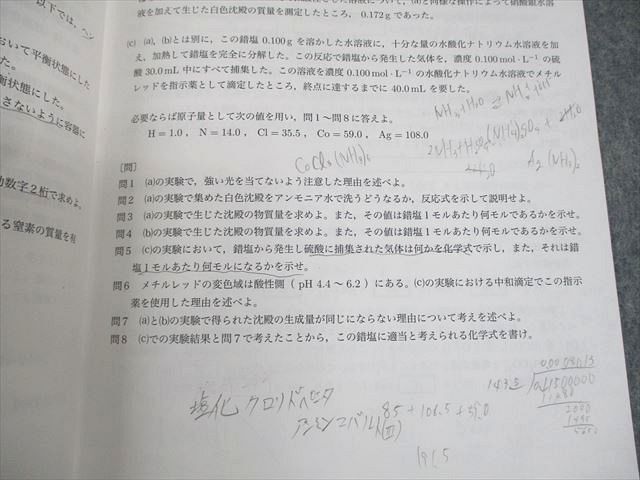 以下では，ヘン
おいて平衡状態にした
た。
衡状態にした。
さないように容器に
効数字２桁で求めよ。
る窒素の質量を有
液を加えて生じた白色沈殿の質量を測定したところ，0.172gであった。
(c) (a)，(b)とは別に，この錯塩 0.100 g を溶かした水溶液に，十分な量の水酸化ナトリウム水溶液を加
え，加熱して錯塩を完全に分解した。この反応で錯塩から発生した気体を，濃度 0.100 mol・L⁻¹ の硫
酸 30.0 mL 中にすべて捕集した。この溶液を濃度 0.100 mol・L⁻¹ の水酸化ナトリウム水溶液でメチル
レッドを指示薬として滴定したところ，終点に達するまでに 40.0 mL を要した。
必要ならば原子量として次の値を用い，問１〜問８に答えよ。
H = 1.0， N = 14.0， Cl = 35.5， Co = 59.0， Ag = 108.0
CoCl3(NH3)6
Ag(NH3)2
[問]
問１ (a)の実験で，強い光を当てないよう注意した理由を述べよ。
問２ (a)の実験で集めた白色沈殿をアンモニア水で洗うとどうなるか，反応式を示して説明せよ。
問３ (a)の実験で生じた沈殿の物質量を求めよ。また，その値は錯塩１モルあたり何モルであるかを示せ。
問４ (b)の実験で生じた沈殿の物質量を求めよ。また，その値は錯塩１モルあたり何モルであるかを示せ。
問５ (c)の実験において，錯塩から発生し硫酸に捕集された気体は何かを化学式で示し，また，それは錯
塩１モルあたり何モルになるかを示せ。
問６ メチルレッドの変色域は酸性側（ pH 4.4 〜 6.2 ）にある。(c)の実験における中和滴定でこの指示
薬を使用した理由を述べよ。
問７ (a)と(b)の実験で得られた沈殿の生成量が同じにならない理由について考えを述べよ。
問８ (c)での実験結果と問７で考えたことから，この錯塩に適当と考えられる化学式を書け。
塩化 クロリドペンタ
アンミンコバルト(III)
85 + 106.5 + 59.0